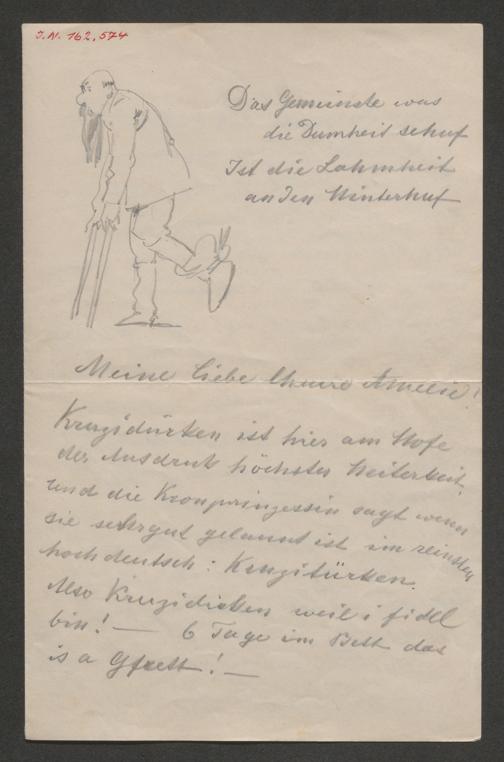 J.N. 162,574
Das Gemeinste was
die Dumheit schuf
Ist die Lahmheit
an den Hinterhuf
Meine liebe theure Amelie!
Kruzidürken ist hier am Hofe
der Ausdruk höchster Heiterkeit,
und die Kronprinzessin sagt wenn
sie sehr gut gelaunt ist im reinsten
hochdeutsch: Kruzitürken.
Also Kruzidirken weil i fidel
bin! — 6 Tage im Bett das
is a Gfrett! —